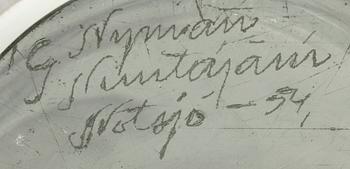 G Nyman
Nuutajärvi
Notsjö -54,